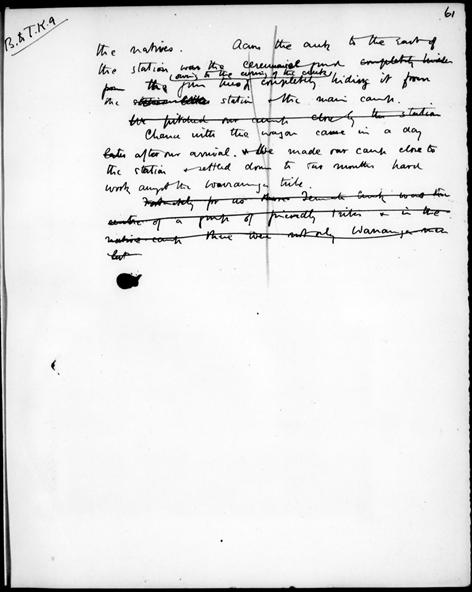 61
B. & T. K. 9
the natives. Across the creek to the East of
the station was the ceremonial ground completely hidden
from the gum trees completely hiding it from
(owing to the curving of the creek)
the station & the main camp.
We pitched our camp closely the station
Chance with the wagon came in a day
later after our arrival. & We made our camp close to
the station & settled down to two months hard
work amongst the Warramunga tribe.
Fortunately for us Tennant Creek was the
centre of a group of friendly tribes & in the
native camp there were not only Warramunga men
but